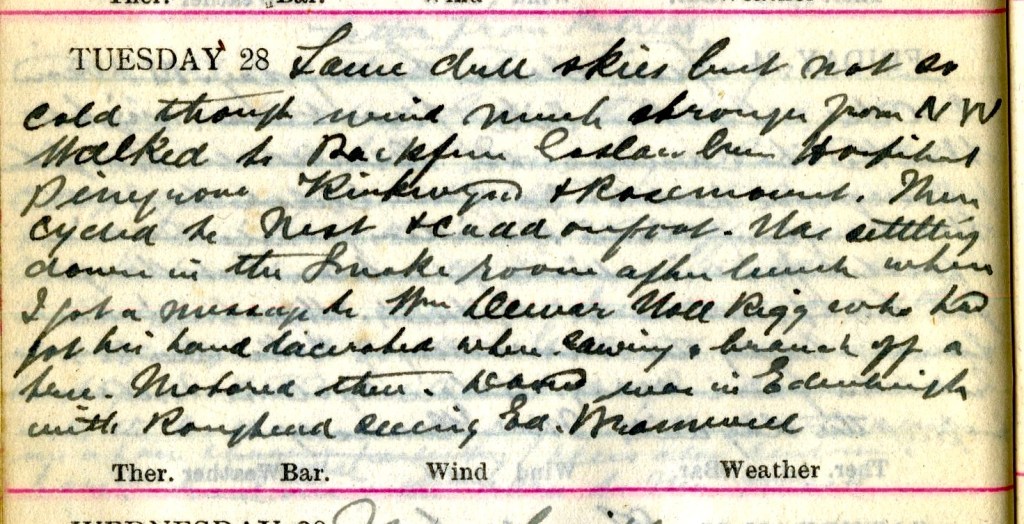 Ther. Bar. Wind Weather
TUESDAY 28 Same dull skies but not so
cold though wind much stronger from N W
Walked to Hospital
Kirkwynd & Rosemount. Then
cycled to Nest & Caddonfoot. Was settling
down in the Smoke room after lunch when
I got a message to Wm Dewar Rigg who had
got his hand lacerated when sawing a branch off a
tree. Motored there. David was in Edinburgh
with Roughead seeing Ed. Bramwell
Ther. Bar. Wind Weather